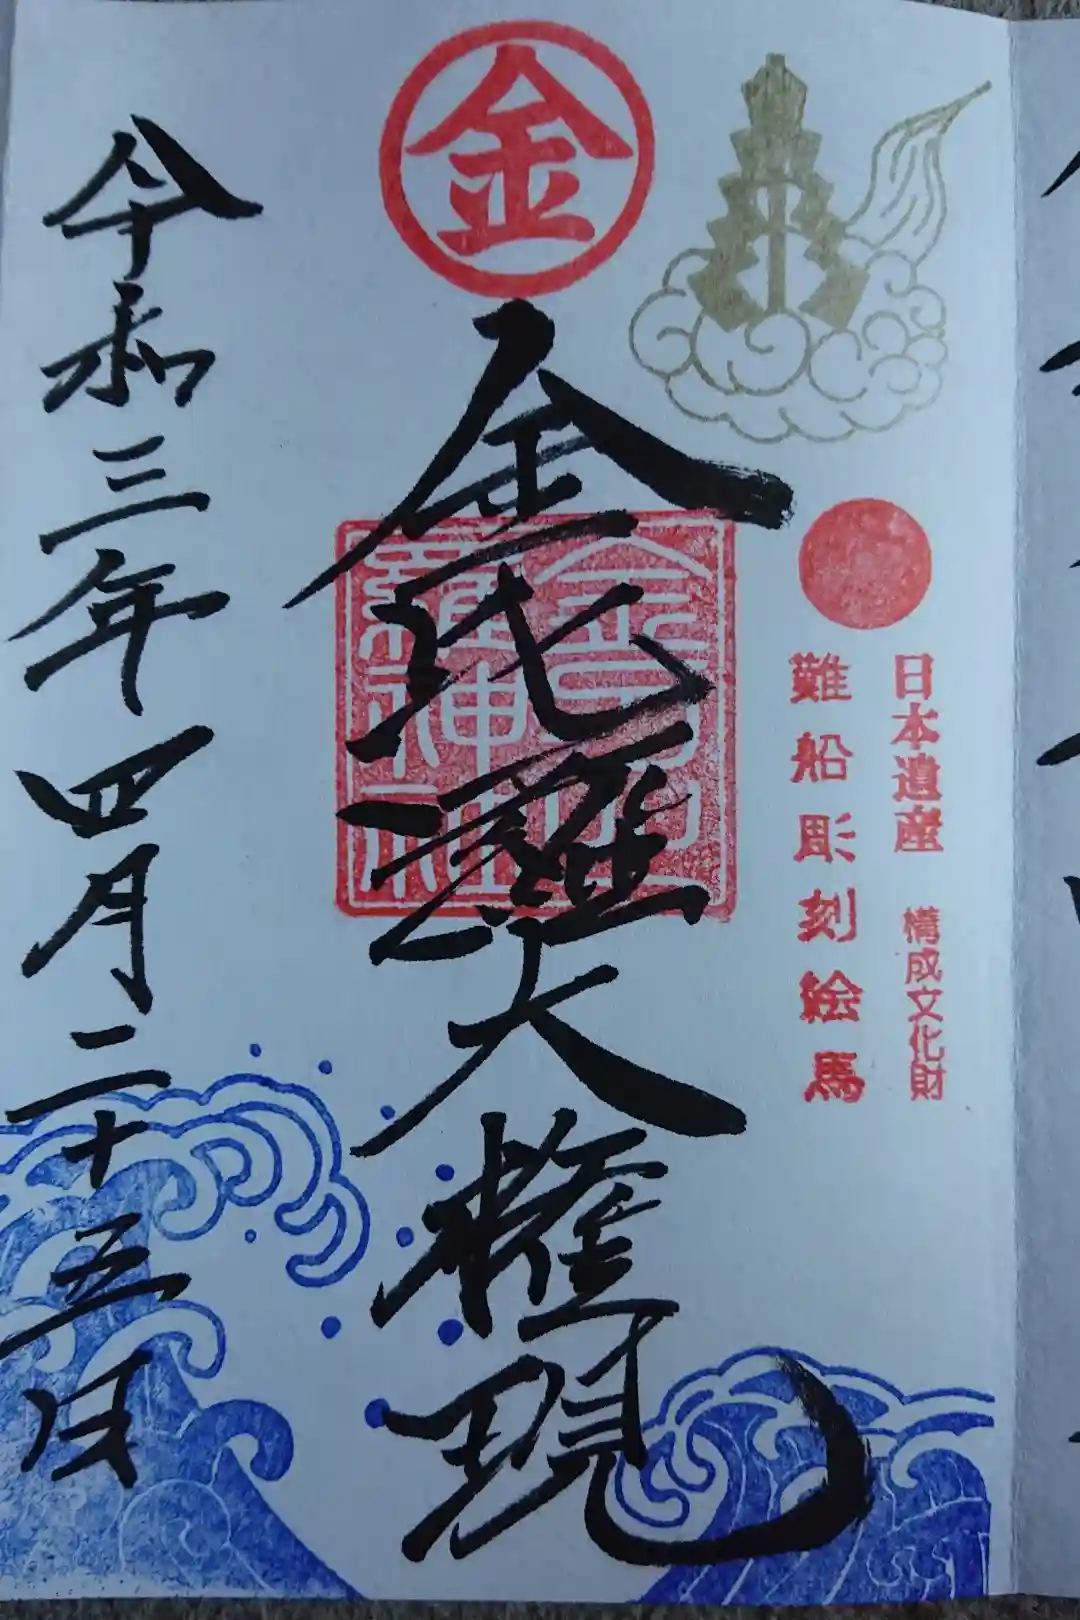 日本遺産 構成文化財
難船彫刻絵馬
金
金比羅大権現
金刀比
羅神社
令和三年四月二十五日